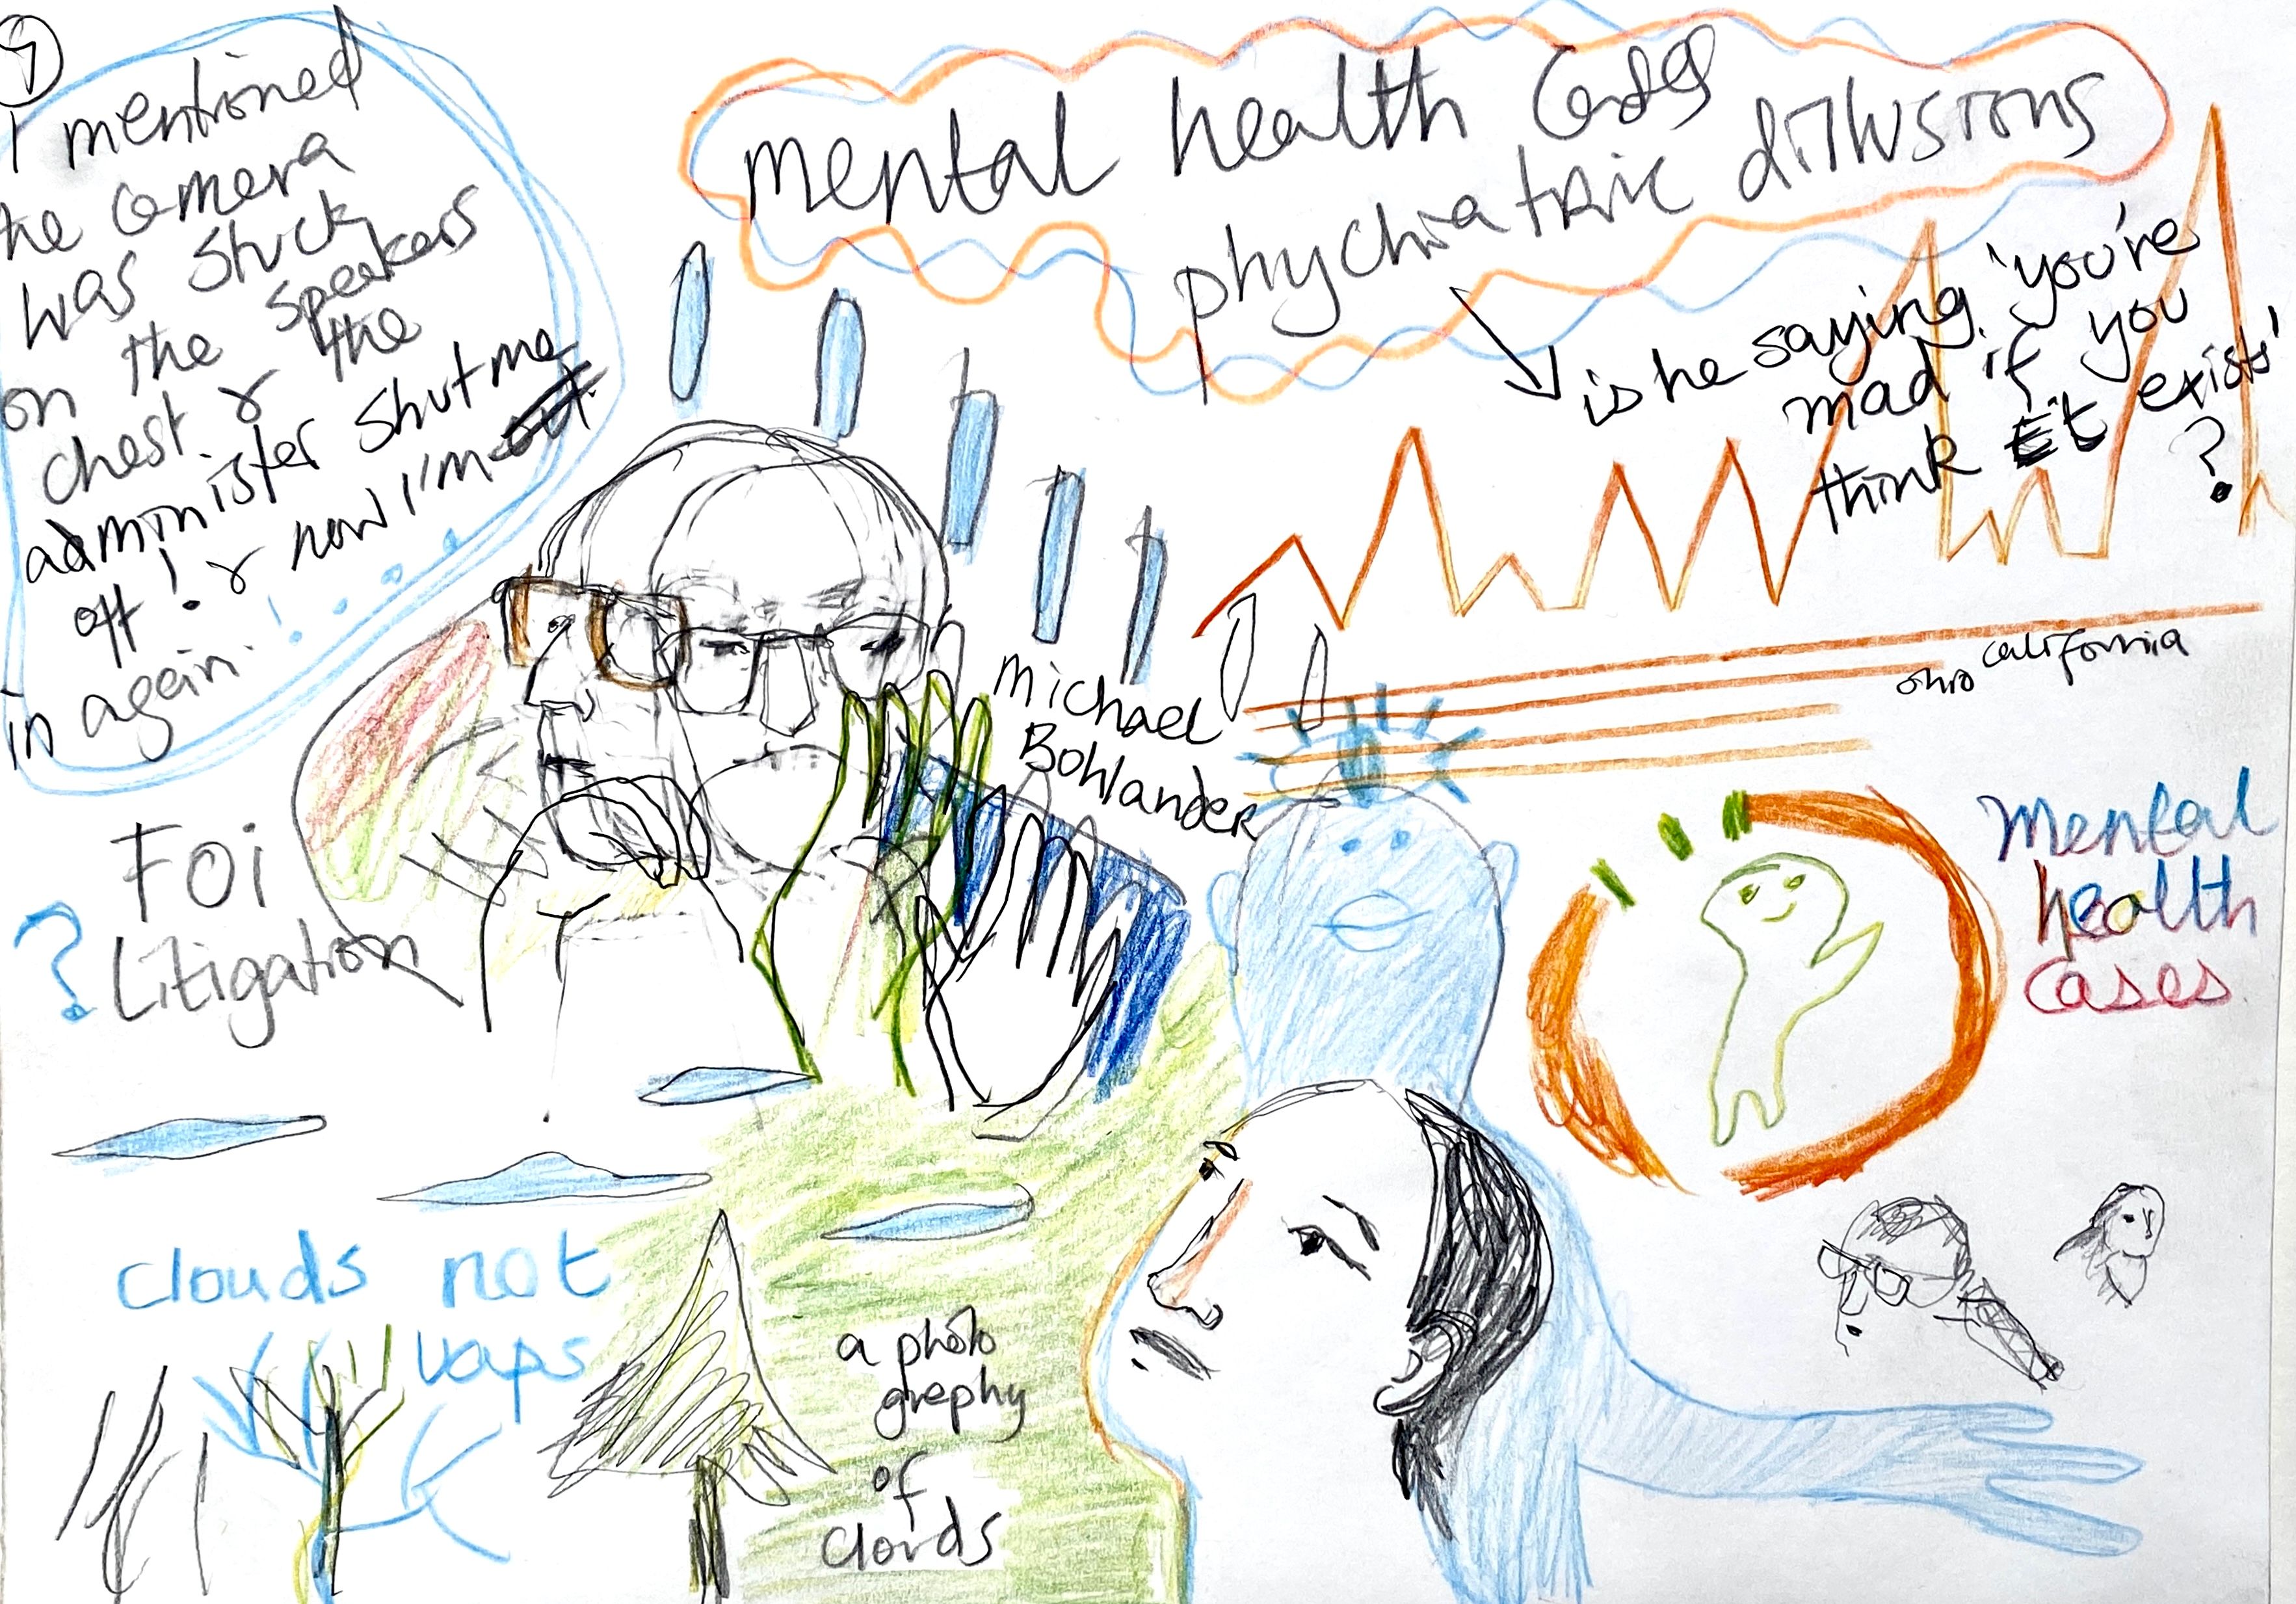 9
I mentioned
the camera
was stuck
on the speakers
chest & the
administer shut me
off! & now I'm out
in again.
mental health cases
phychiatric dillusions
is he saying 'you're
mad if you
think it exists'
?
Michael
Bohlander
ohio california
FOI
? Litigation
mental
health
cases
clouds not
vaps
a photo
grephy
of
clouds